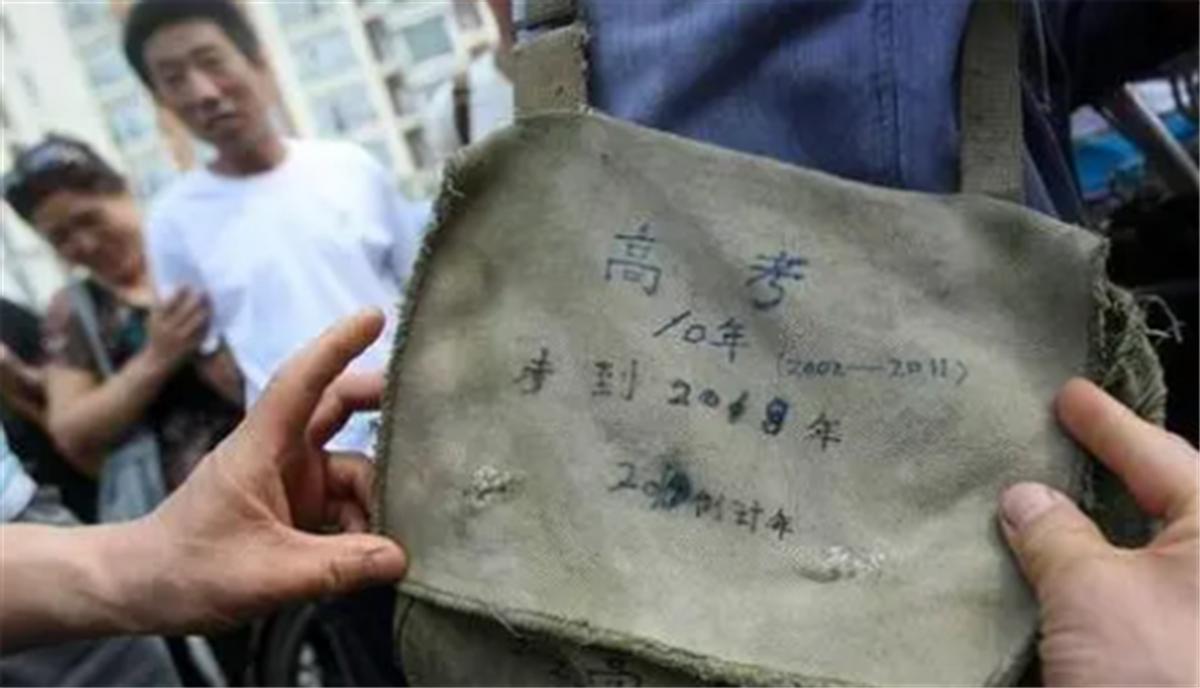 高考
10年 (2002—2011)
考到2018年
20 倒计年
高